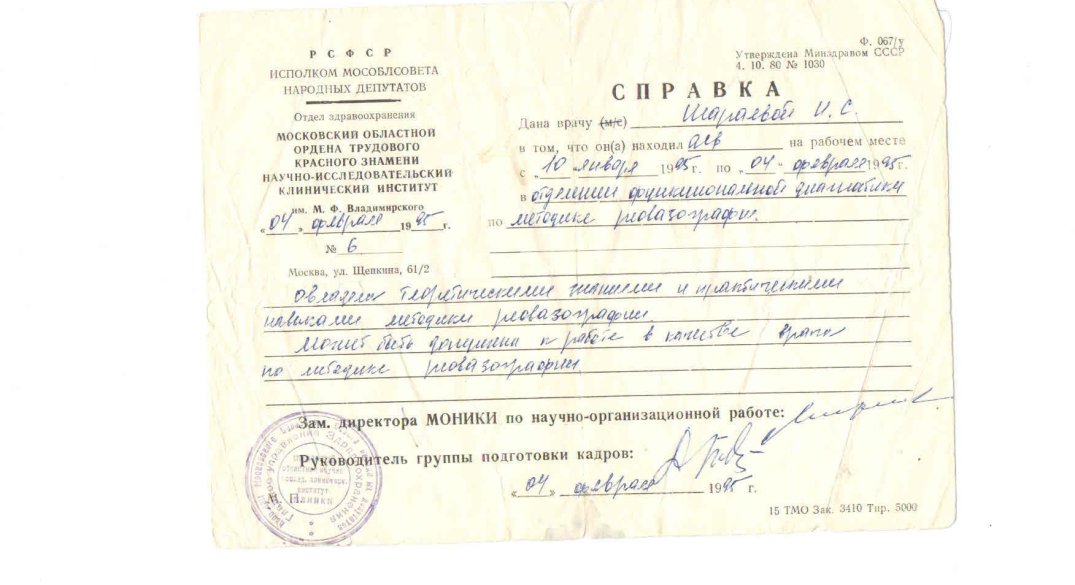 Р С Ф С Р
ИСПОЛКОМ МОСОБЛСОВЕТА
НАРОДНЫХ ДЕПУТАТОВ
Отдел здравоохранения
МОСКОВСКИЙ ОБЛАСТНОЙ
ОРДЕНА ТРУДОВОГО
КРАСНОГО ЗНАМЕНИ
НАУЧНО-ИССЛЕДОВАТЕЛЬСКИЙ
КЛИНИЧЕСКИЙ ИНСТИТУТ
им. М. Ф. Владимирского
„04" февраля 1995 г.
№ 6
Москва, ул. Щепкина, 61/2
Ф. 067/у
Утверждена Минздравом СССР
4. 10. 80 № 1030
СПРАВКА
Дана врачу (м/с) И. С.
в том, что он(а) находил ась на рабочем месте
с „10" января 1995 г. по „04" февраля 1995 г.
в отделении функциональной диагностики
по методике реовазографии.
овладела теоретическими знаниями и практическими
навыками методики реовазографии
Может быть допущена к работе в качестве врача
по методике реовазографии
Зам. директора МОНИКИ по научно-организационной работе:
Руководитель группы подготовки кадров:
„04" февраля 1995 г.
М. П.
Главное Управление Здравоохранения
15 ТМО Зак. 3410 Тир. 5000